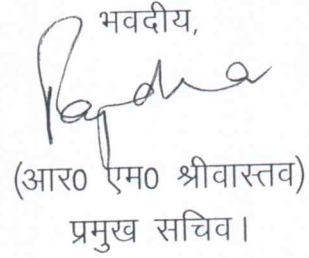 भवदीय,
(आर0 एम0 श्रीवास्तव)
प्रमुख सचिव।